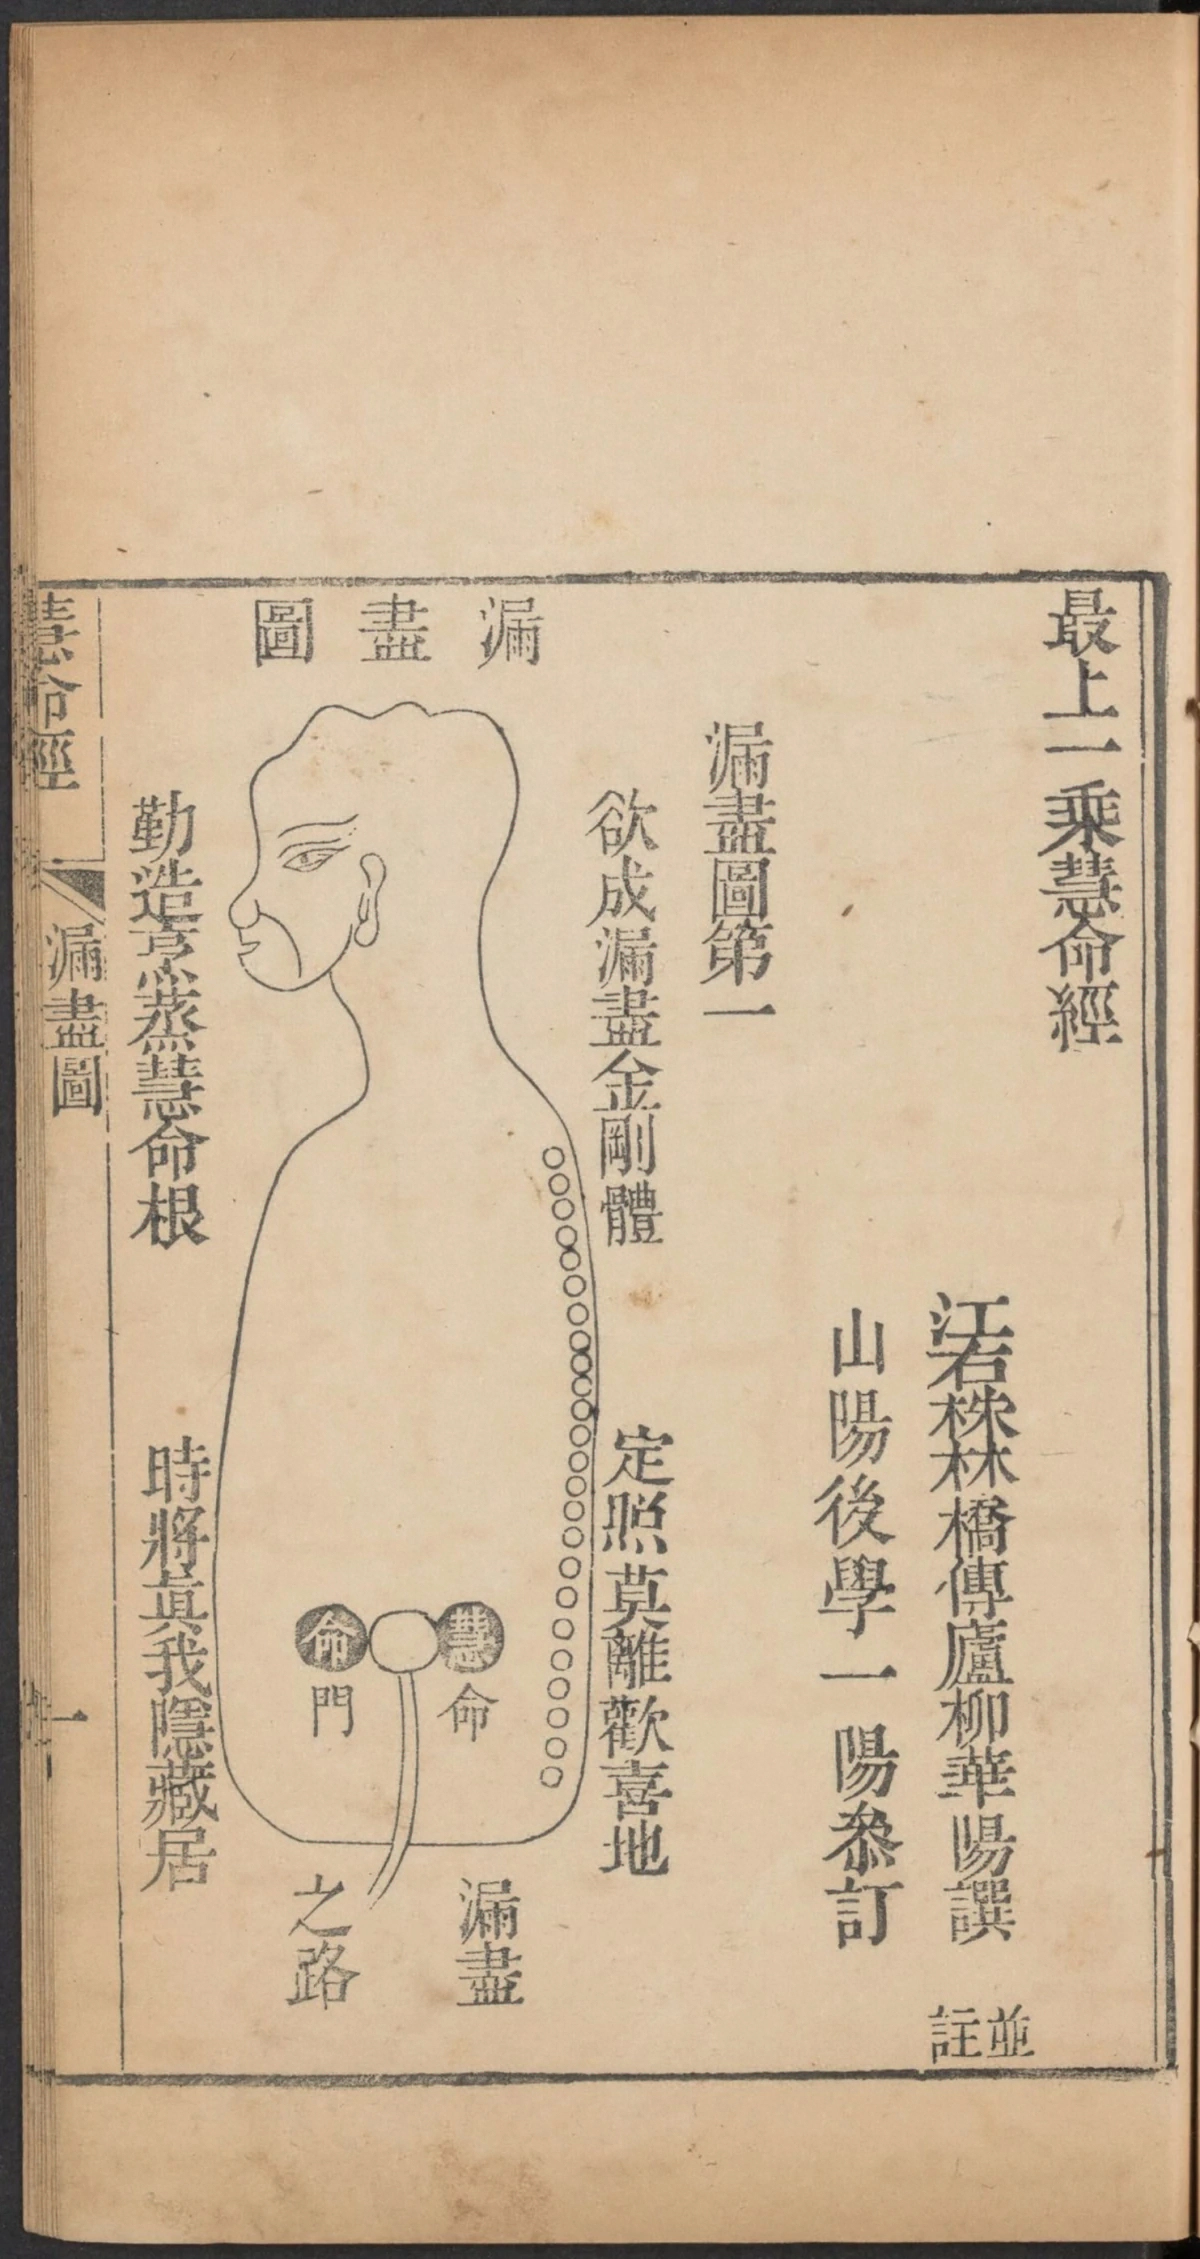 最上一乘慧命經
江右株林橋傳廬柳華陽譔
並註
山陽後學一陽叅訂
漏盡圖第一
欲成漏盡金剛體
定照莫離歡喜地
漏盡圖
慧命
命門
漏盡
之路
勤造烹蒸慧命根
時將眞我隱藏居
慧命經
漏盡圖
一